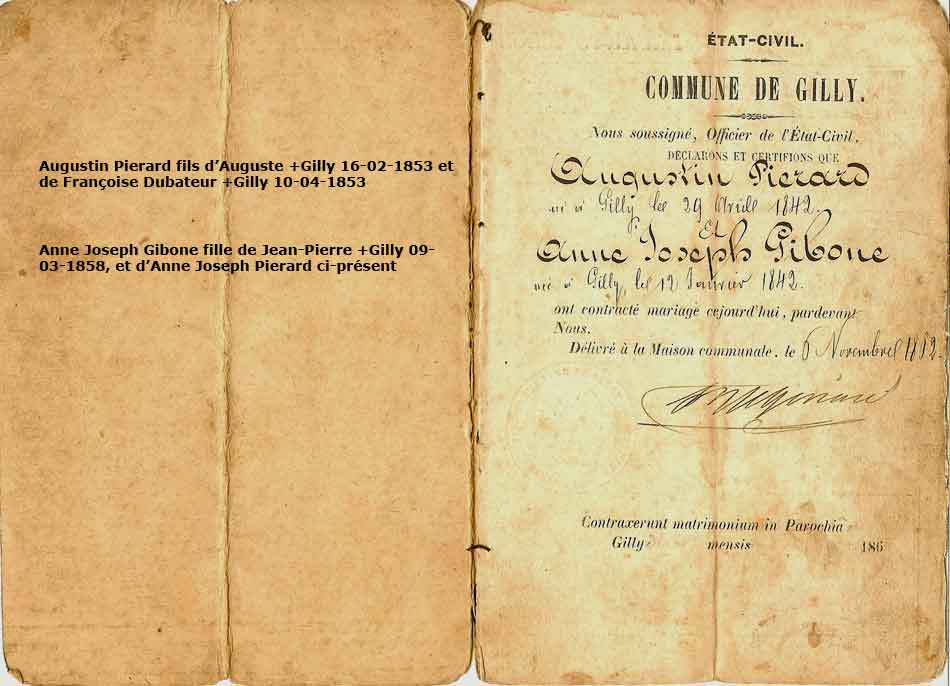 Augustin Pierard fils d’Auguste +Gilly 16-02-1853 et
de Françoise Dubateur +Gilly 10-04-1853
Anne Joseph Gibone fille de Jean-Pierre +Gilly 09-
03-1858, et d’Anne Joseph Pierard ci-présent
ÉTAT-CIVIL.
COMMUNE DE GILLY.
Nous soussigné, Officier de l'État-Civil,
DÉCLARONS ET CERTIFIONS QUE
Augustin Pierard
né à Gilly le 29 Avril 1842.
Et
Anne Joseph Gibone
née à Gilly, le 12 Janvier 1842.
ont contracté mariage cejourd'hui, pardevant
Nous.
Délivré à la Maison communale, le 6 Novembre
Contraxerunt matrimonium in Parochia
Gilly mensis 186